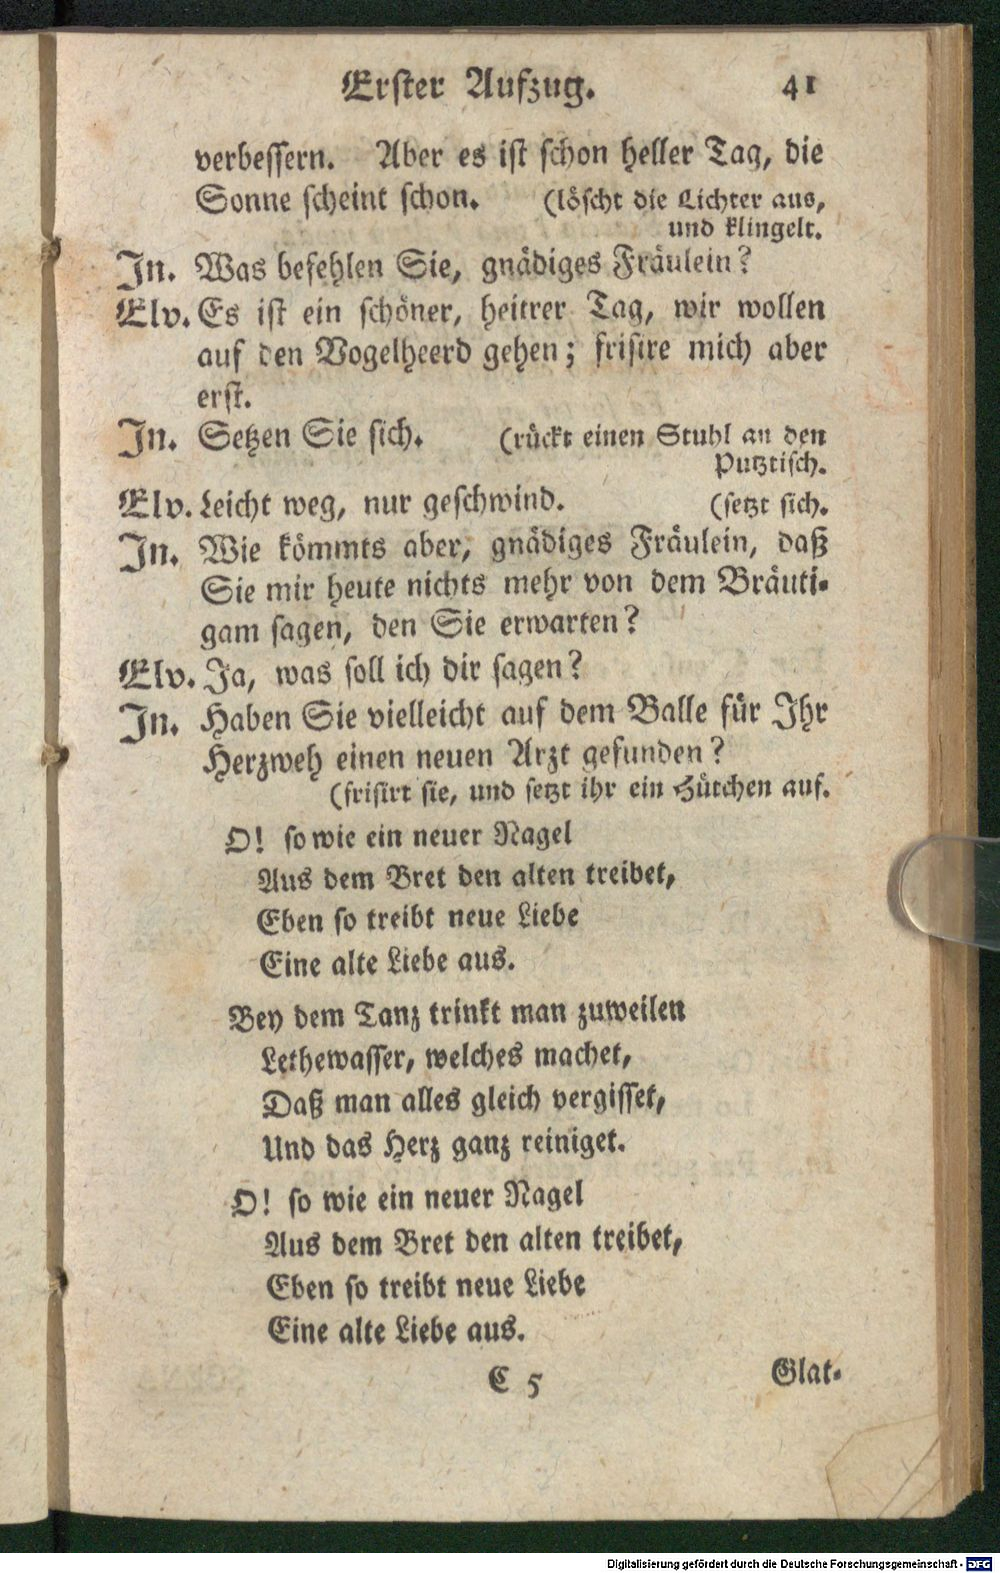 Erster Aufzug. 41
verbessern. Aber es ist schon heller Tag, die
Sonne scheint schon. (löscht die Lichter aus,
und klingelt.
In. Was befehlen Sie, gnädiges Fräulein?
Elv. Es ist ein schöner, heitrer Tag, wir wollen
auf den Vogelheerd gehen; frisire mich aber
erst.
In. Setzen Sie sich. (rückt einen Stuhl an den
Putztisch.
Elv. Leicht weg, nur geschwind. (setzt sich.
In. Wie kömmts aber, gnädiges Fräulein, daß
Sie mir heute nichts mehr von dem Bräuti-
gam sagen, den Sie erwarten?
Elv. Ja, was soll ich dir sagen?
In. Haben Sie vielleicht auf dem Balle für Ihr
Herzweh einen neuen Arzt gefunden?
(frisirt sie, und setzt ihr ein Hütchen auf.
O! so wie ein neuer Nagel
Aus dem Bret den alten treibet,
Eben so treibt neue Liebe
Eine alte Liebe aus.
Bey dem Tanz trinkt man zuweilen
Lethewasser, welches machet,
Daß man alles gleich vergisset,
Und das Herz ganz reiniget.
O! so wie ein neuer Nagel
Aus dem Bret den alten treibet,
Eben so treibt neue Liebe
Eine alte Liebe aus.
C 5 Glat-
Digitalisierung gefördert durch die Deutsche Forschungsgemeinschaft - DFG